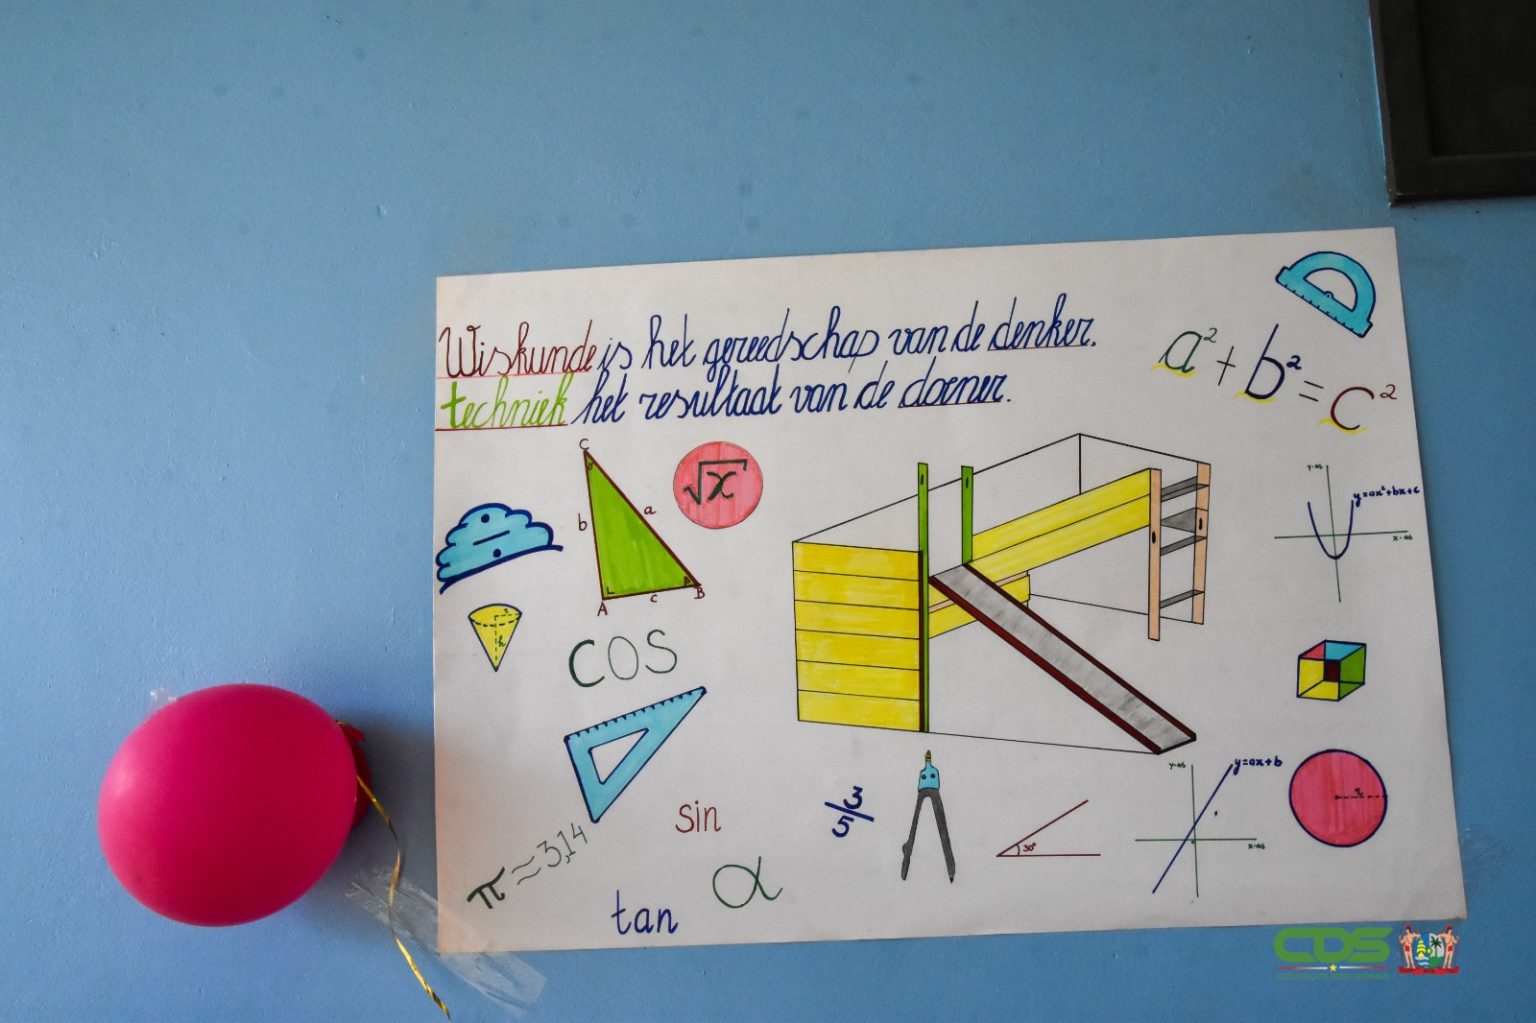 Wiskunde is het gereedschap van de denker.
techniek het resultaat van de doener.
a² + b² = c²
C
b
a
A
c
B
√x
y-as
y=ax²+bx+c
x-as
r
h
cos
sin
π≈3,14
α
tan
3/5
30°
y-as
y=ax+b
x-as
r
CDS